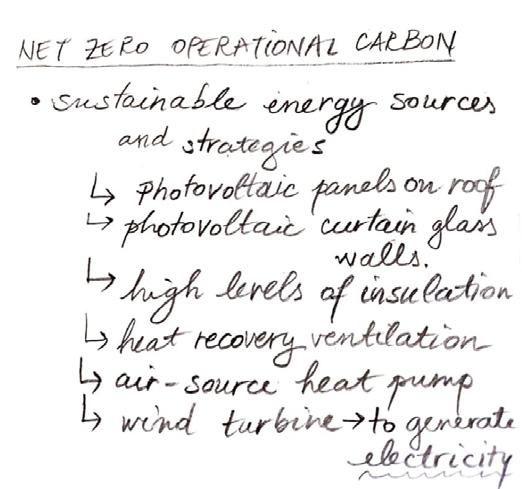 NET ZERO OPERATIONAL CARBON
• sustainable energy sources
and strategies
↳ photovoltaic panels on roof
↳ photovoltaic curtain glass
walls.
↳ high levels of insulation
↳ heat recovery ventilation
↳ air-source heat pump
↳ wind turbine → to generate
electricity